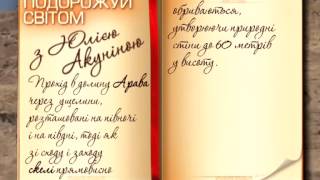 ПОДОРОЖУЙ
СВІТОМ
з Юлією
Акуніною
Прохід в долину Арава
через ущелини,
розташовані на півночі
і на півдні, тоді як
зі сходу і заходу
скелі прямовисно
обриваються,
утворюючи природні
стіни до 60 метрів
у висоту.